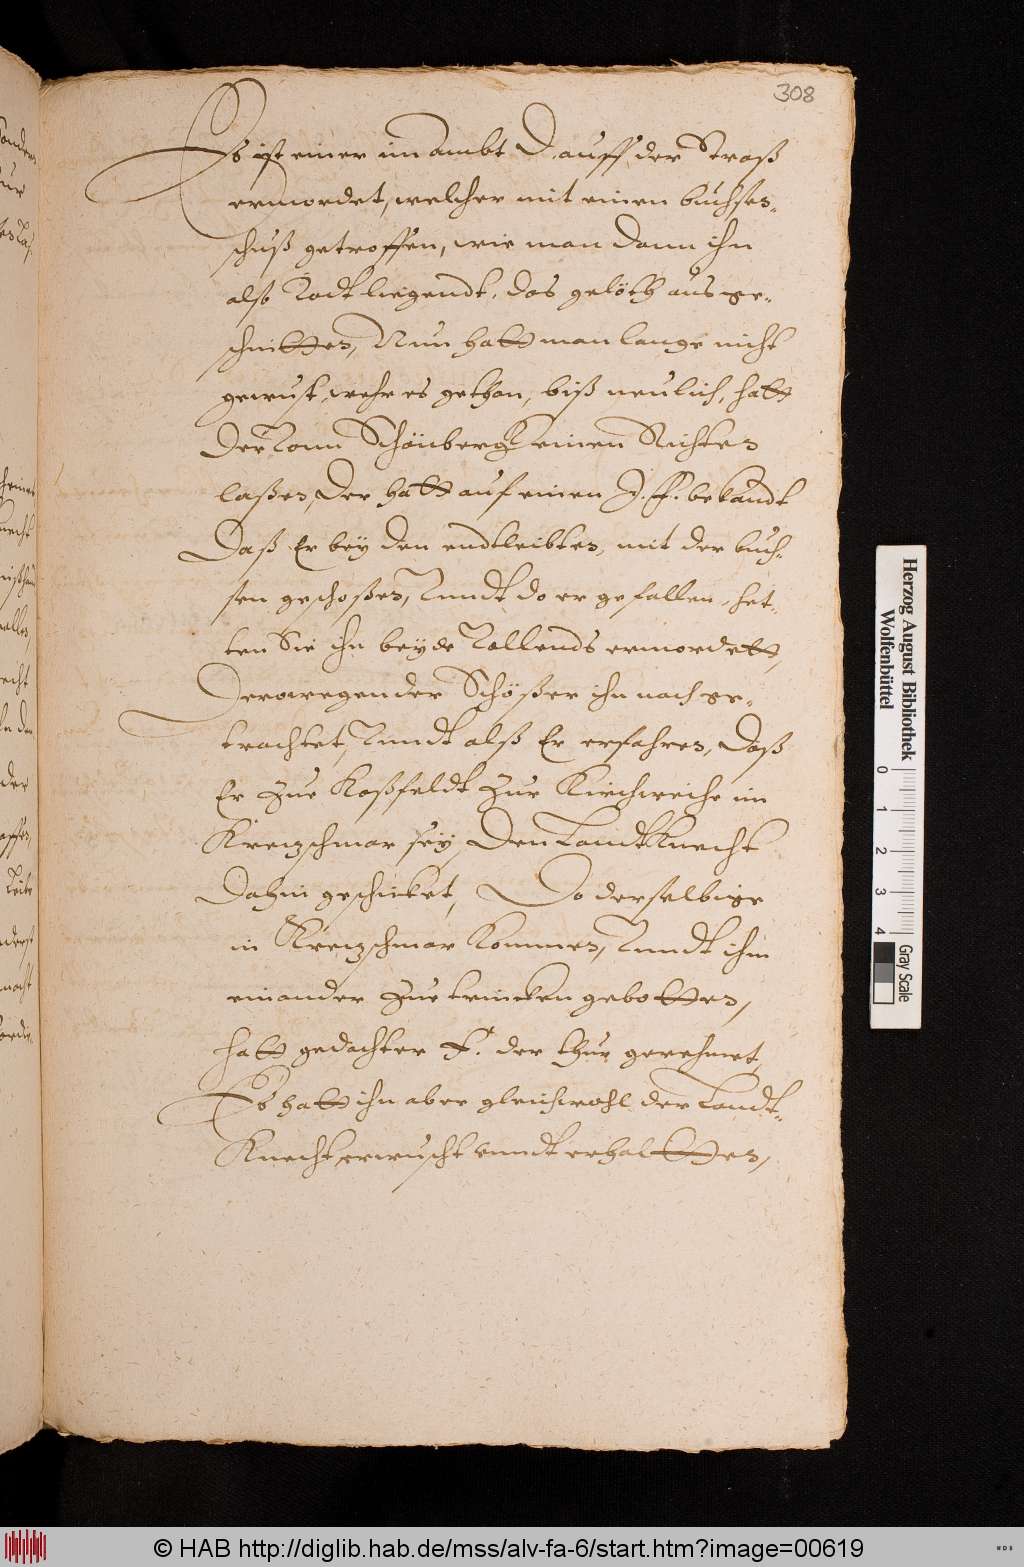 308
Es ist einer im Ambt D. auff der Straß
ermordet, welcher mit einen buchsen-
schuß getroffen, wie man dann ihn
alß Todt liegendt, das gelöth ausge-
schnitten, Nun hatt man lange nicht
gewust, wehr es gethan, biß neulich, hatt
Der von Schönbergk einen Richten
laßen, Der hatt auf einen J. F. bekandt
Daß Er bey den endtleibten, mit der buch-
sen geschoßen, Vundt do er gefallen, het-
ten Sie ihn beyde Vollends ermordett,
Derowegen der Schößer ihn nach ge-
trachtet, Vundt alß Er erfahren, Daß
Er Zue Roßfeldt Zur Kirchweihe im
Kretzschmar sey, Den Landt Knecht
Dahin geschicket, Do derselbige
in Kretzschmar Kommen, Vundt ihm
einander Zue trincken gebotten,
hatt gedachter F. der thur gerehmet,
Es hatt ihn aber gleichwohl der Landt-
Knecht erwuscht vnndt erhaltten,
Herzog August Bibliothek
Wolfenbüttel
0 1 2 3 4
Gray Scale
© HAB http://diglib.hab.de/mss/alv-fa-6/start.htm?image=00619